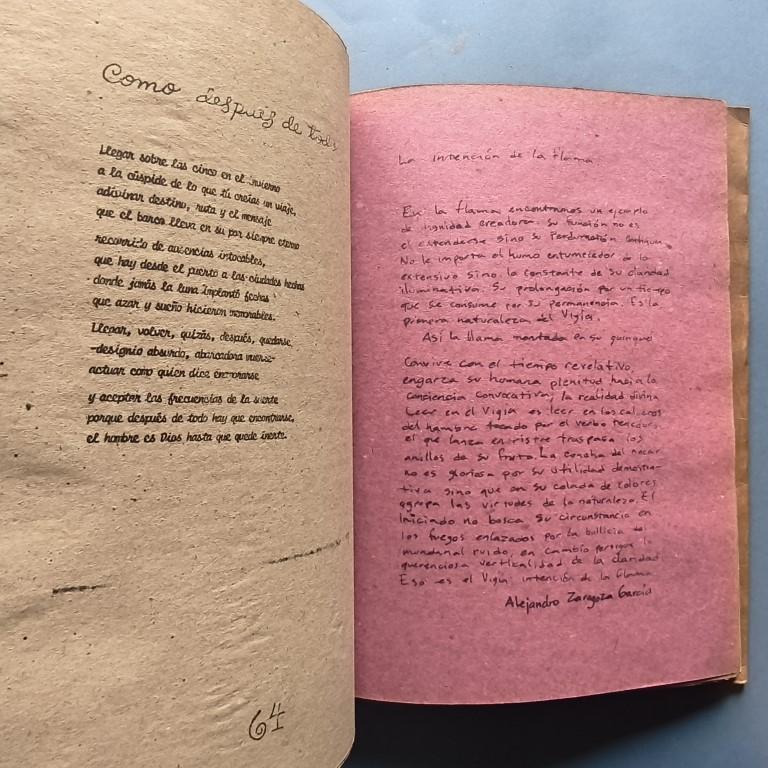 Como despuéz de todo
Llegar sobre las cinco en el invierno
a la cúspide de lo que tú creías un viaje,
adivinar destino, ruta y el mensaje
que el barco lleva en su por siempre eterno
recorrido de ausencias intocables,
que hay desde el puerto a las ciudades hechas
donde jamás la luna implantó fechas
que azar y sueño hicieron memorables.
Llegar, volver, quizás, después, quedarse,
-designio absurdo, abarcadora muerte-
actuar como quien dice enamorarse
y aceptar las frecuencias de la suerte
porque después de todo hay que encontrarse,
el hombre es Dios hasta que quede inerte.
64
La intención de la flama
En la flama encontramos un ejemplo
de dignidad creadora. su función no es
el extenderse sino su perduración
No le importa el humo entumecedor de lo
extensivo sino la constante de su claridad
iluminativa. Su prolongación por un tiempo
que se consume por su permanencia. Es la
primera naturaleza del Vigía.
Así la llama montada en su quinqué
Convive con el tiempo revelativo,
engarza su humana plenitud hacia la
conciencia convocativa; la realidad divina
Leer en el Vigía es leer en los
del hombre tocado por el verbo
el que lanza en ristre traspasa los
anillos de su fruto. La concha del nacar
no es gloriosa por su utilidad demostra-
tiva sino que en su colada de colores
agrupa las virtudes de la naturaleza. El
Iniciado no busca su circunstancia en
los fuegos enlazados por la bullicia del
mundanal ruido, en cambio persigue la
querenciosa verticalidad de la claridad
Eso es el Vigía: intención de la flama
Alejandro Zaragoza García